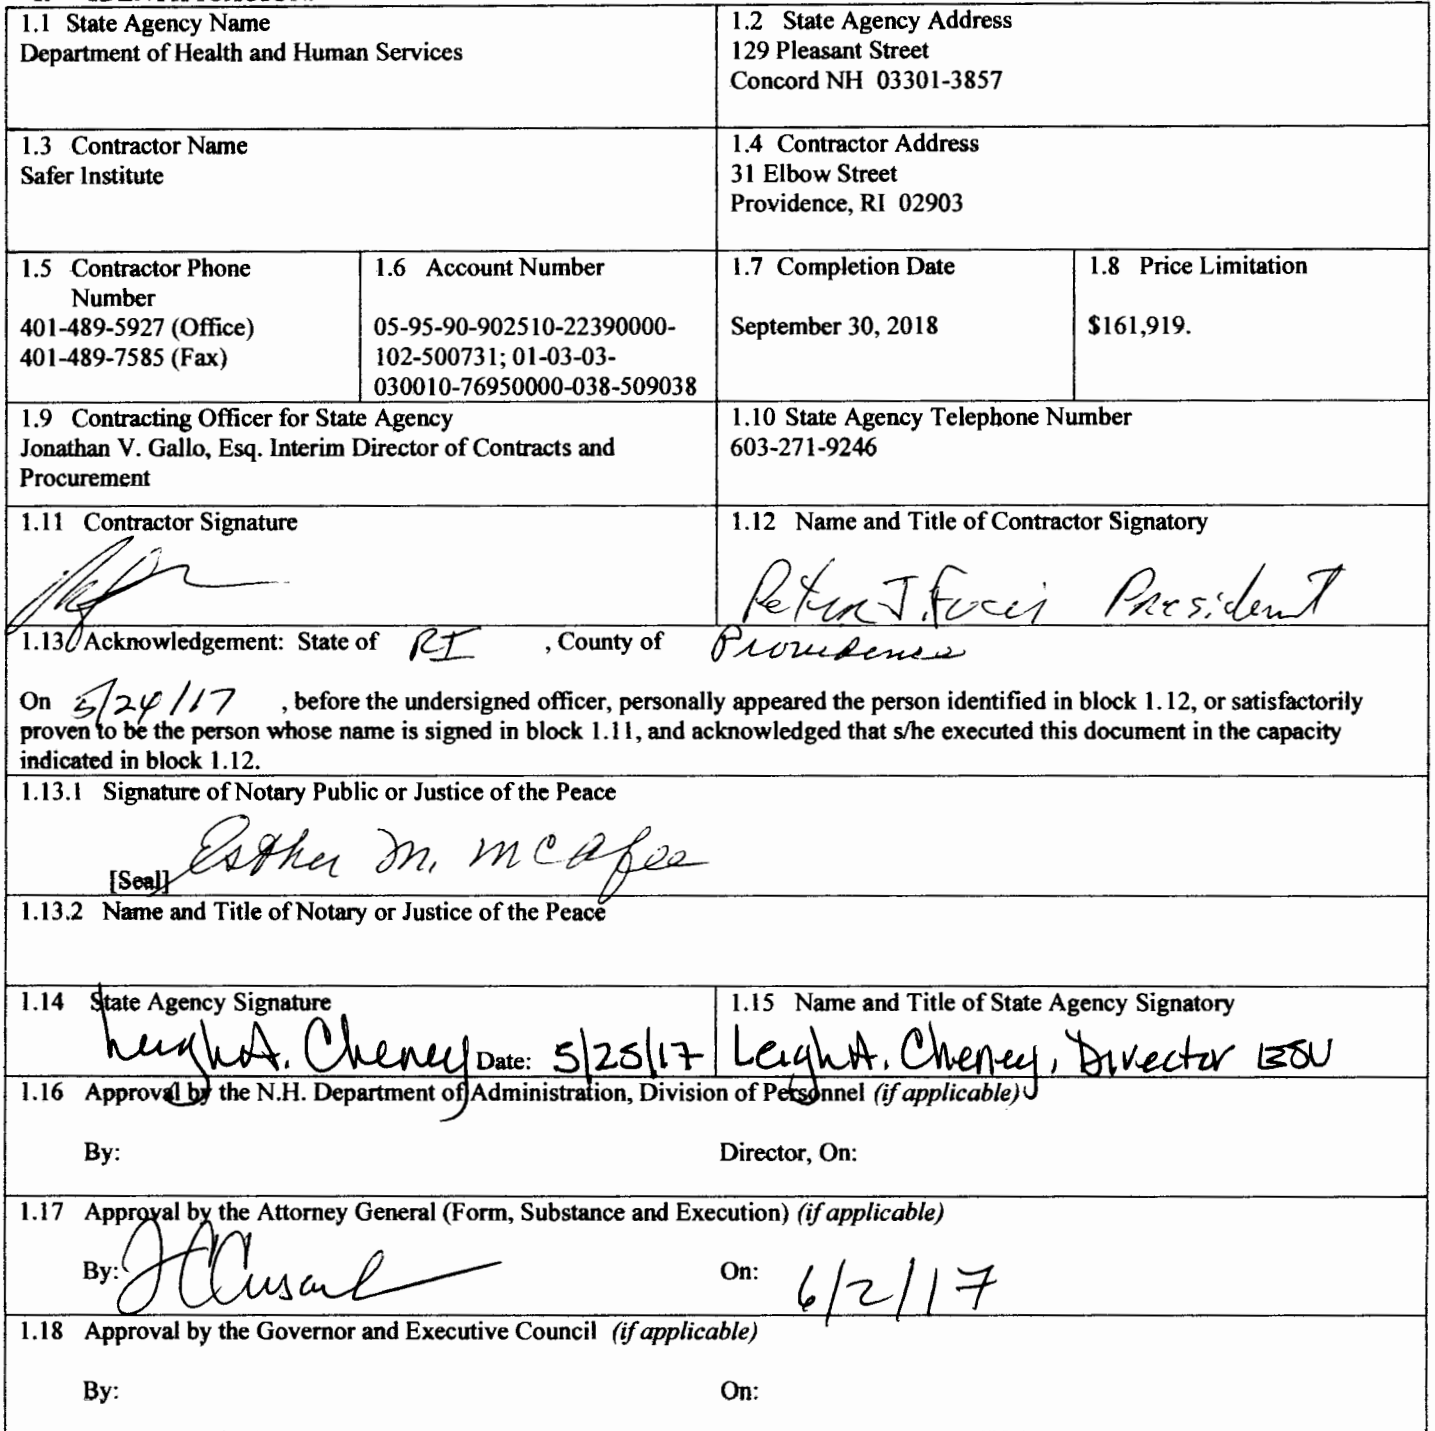 1.1 State Agency Name
Department of Health and Human Services
1.2 State Agency Address
129 Pleasant Street
Concord NH 03301-3857
1.3 Contractor Name
Safer Institute
1.4 Contractor Address
31 Elbow Street
Providence, RI 02903
1.5 Contractor Phone
Number
401-489-5927 (Office)
401-489-7585 (Fax)
1.6 Account Number
05-95-90-902510-22390000-
102-500731; 01-03-03-
030010-76950000-038-509038
1.7 Completion Date
September 30, 2018
1.8 Price Limitation
$161,919.
1.9 Contracting Officer for State Agency
Jonathan V. Gallo, Esq. Interim Director of Contracts and
Procurement
1.10 State Agency Telephone Number
603-271-9246
1.11 Contractor Signature
1.12 Name and Title of Contractor Signatory
Peter J. President
1.13 Acknowledgement: State of RI , County of Providence
On 5/24/17 , before the undersigned officer, personally appeared the person identified in block 1.12, or satisfactorily
proven to be the person whose name is signed in block 1.11, and acknowledged that s/he executed this document in the capacity
indicated in block 1.12.
1.13.1 Signature of Notary Public or Justice of the Peace
Esther M. McAfee
[Seal]
1.13.2 Name and Title of Notary or Justice of the Peace
1.14 State Agency Signature
Leigh A. Cheney Date: 5/25/17
1.15 Name and Title of State Agency Signatory
Leigh A. Cheney, Director
1.16 Approval by the N.H. Department of Administration, Division of Personnel (if applicable)
By: Director, On:
1.17 Approval by the Attorney General (Form, Substance and Execution) (if applicable)
By: On: 6/2/17
1.18 Approval by the Governor and Executive Council (if applicable)
By: On: